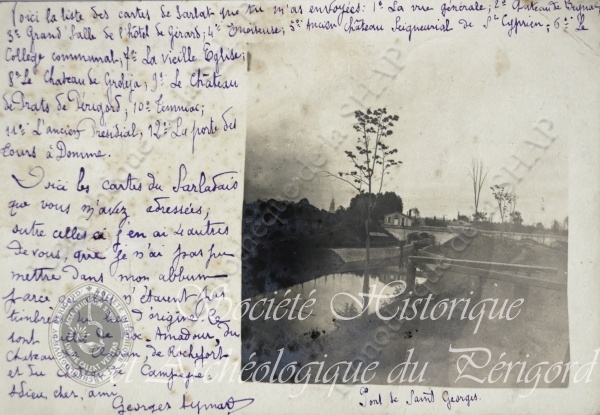 Voici la liste des cartes de Sarlat que tu m'as envoyées: 1º La vue générale; 2º Château de Beynac
3º Grand Salle de l'hôtel de Gérard; 4º 5º Ancien Château Seigneurial de St Cyprien; 6º Le
Collège communal; 7º La vieille Eglise;
8º Le Chateau de Grolejac, 9º Le Château
de Prats de Périgord, 10º Temniac;
11º L'ancien Présidial; 12º La porte des
tours à Domme.
Voici les cartes du Sarladais
que vous m'avez adressées;
outre celles ci j'en ai 4 autres
de vous, que je n'ai pas pu
mettre dans mon album
parce n'étaient pas
timbrées d'origine. Ce
sont Amadour, du
chateau de Rochefort
et du Campagne
Adieu, cher, ami
Georges
Pont de Saint Georges.
Société Historique
et Archéologique du Périgord
Bibliothèque de la SHAP